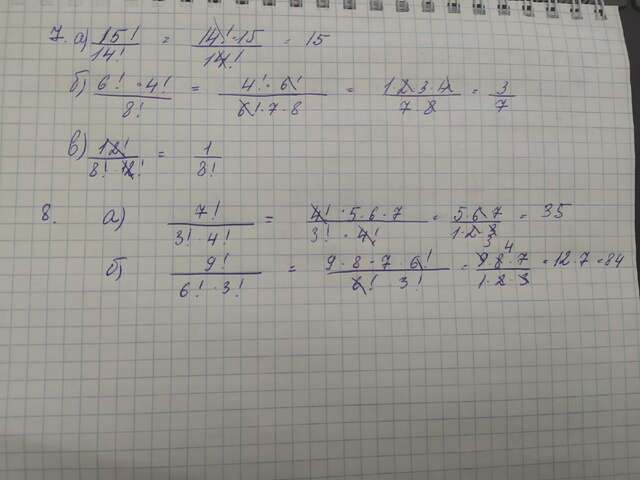 7. а) 15! / 14! = 14! · 15 / 14! = 15
б) 6! · 4! / 8! = 4! · 6! / 6! · 7 · 8 = 1 2 3 · 4 / 7 · 8 = 3 / 7
в) 12! / 8! · 12! = 1 / 8!
8. а) 7! / 3! · 4! = 4! · 5 · 6 · 7 / 3! · 4! = 5 · 6 · 7 / 1 · 2 · 3 = 35
б) 9! / 6! · 3! = 9 · 8 · 7 · 6! / 6! · 3! = 9 3 8 4 · 7 / 1 · 2 · 3 = 12 · 7 = 84